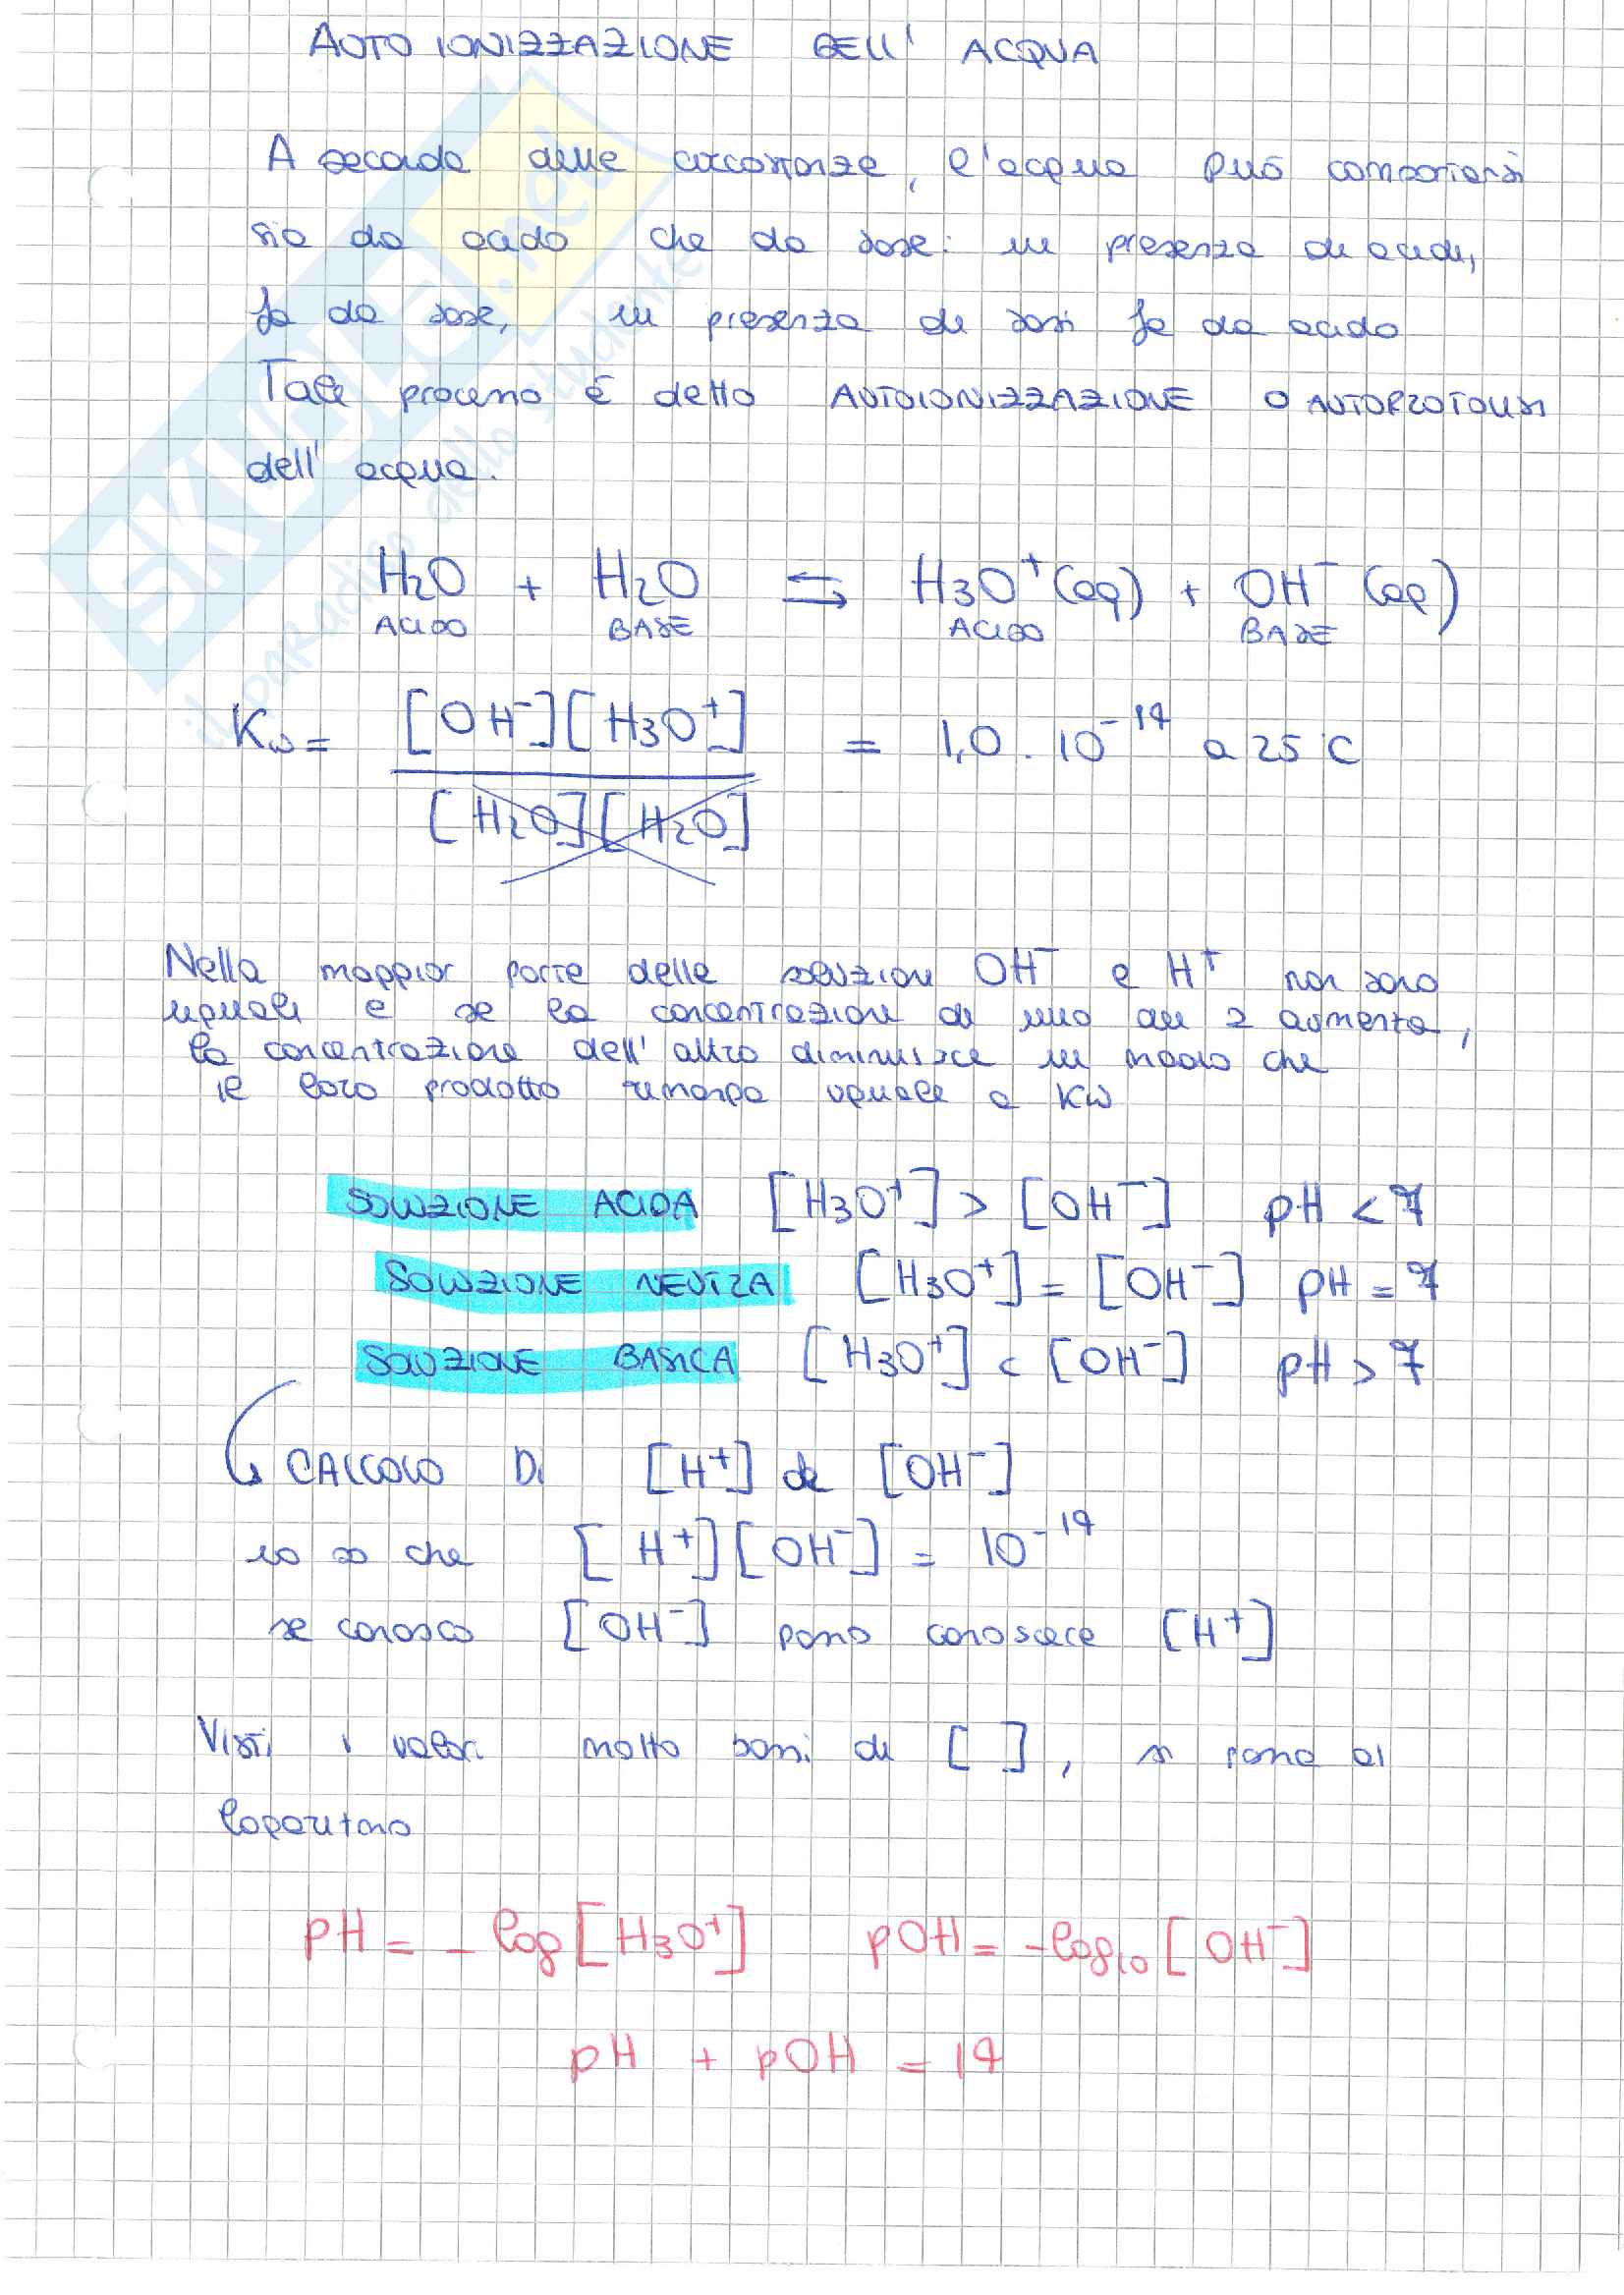 AUTOIONIZZAZIONE DELL' ACQUA
A seconda delle circostanze, l'acqua può comportarsi
sia da acido che da base: in presenza di acidi,
fa da base, in presenza di basi fa da acido
Tale processo è detto AUTOIONIZZAZIONE O AUTOPROTOLISI
dell' acqua.
H2O + H2O ⇆ H3O+ (aq) + OH- (aq)
ACIDO BASE ACIDO BASE
Kw = [OH-][H3O+] = 1,0 . 10-14 a 25°C
[H2O][H2O]
Nella maggior parte delle soluzioni OH- e H+ non sono
uguali e se la concentrazione di uno dei 2 aumenta,
la concentrazione dell' altro diminuisce in modo che
il loro prodotto rimanga uguale a Kw
SOLUZIONE ACIDA [H3O+] > [OH-] pH < 7
SOLUZIONE NEUTRA [H3O+] = [OH-] pH = 7
SOLUZIONE BASICA [H3O+] < [OH-] pH > 7
↳ CALCOLO DI [H+] da [OH-]
io so che [H+][OH-] = 10-14
se conosco [OH-] posso conoscere [H+]
Visti i valori molto bassi di [ ], si passa al
logaritmo
pH = - log [H3O+] pOH = -log10 [OH-]
pH + pOH = 14
SKUOLA.net
il paradiso dello studente